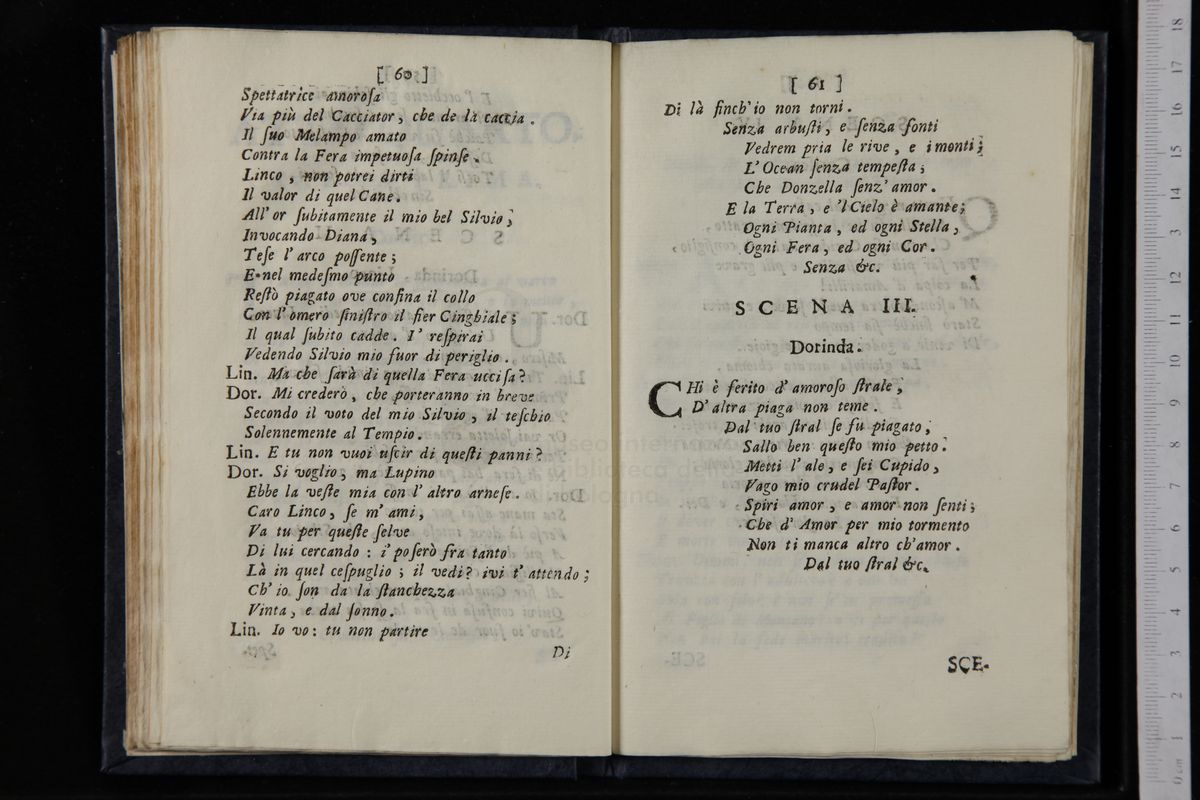 [ 60 ]
Spettatrice amoroſa
Via più del Cacciator, che de la caccia.
Il ſuo Melampo amato
Contra la Fera impetuoſa ſpinſe.
Linco, non potrei dirti
Il valor di quel Cane.
All' or ſubitamente il mio bel Silvio,
Invocando Diana,
Teſe l' arco poſſente;
E nel medeſmo punto
Reſtò piagato ove confina il collo
Con l' omero ſiniſtro il fier Cinghiale;
Il qual ſubito cadde. I' reſpirai
Vedendo Silvio mio fuor di periglio.
Lin. Ma che ſarà di quella Fera ucciſa?
Dor. Mi crederò, che porteranno in breve
Secondo il voto del mio Silvio, il teſchio
Solennemente al Tempio.
Lin. E tu non vuoi uſcir di queſti panni?
Dor. Sì voglio, ma Lupino
Ebbe la veſte mia con l' altro arneſe.
Caro Linco, ſe m' ami,
Va tu per queſte ſelve
Di lui cercando: i' poſerò fra tanto
Là in quel ceſpuglio; il vedi? ivi t' attendo;
Ch' io ſon da la ſtanchezza
Vinta, e dal ſonno.
Lin. Io vo: tu non partire
Di
[ 61 ]
Di là finch' io non torni.
Senza arbuſti, e ſenza fonti
Vedrem pria le rive, e i monti;
L' Ocean ſenza tempeſta;
Che Donzella ſenz' amor.
E la Terra, e 'l Cielo è amante;
Ogni Pianta, ed ogni Stella,
Ogni Fera, ed ogni Cor.
Senza &c.
SCENA III.
Dorinda.
CHi è ferito d' amoroſo ſtrale,
D' altra piaga non teme.
Dal tuo ſtral ſe fu piagato,
Sallo ben queſto mio petto.
Metti l' ale, e ſei Cupido,
Vago mio crudel Paſtor.
Spiri amor, e amor non ſenti;
Che d' Amor per mio tormento
Non ti manca altro ch' amor.
Dal tuo ſtral &c.
SCE-